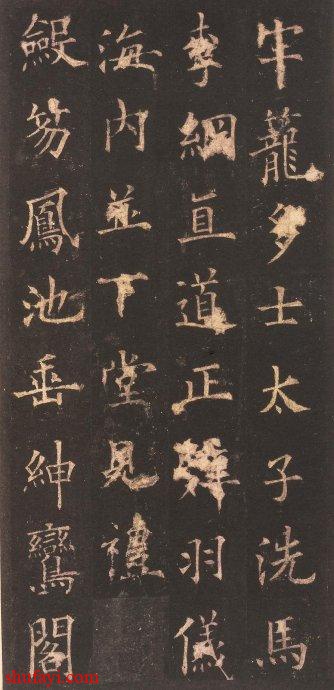 牢籠多士太子洗馬
李綱直道正辭羽儀
海内並下堂見禮
斂笏鳳池垂紳鸞閣
shufayi.com